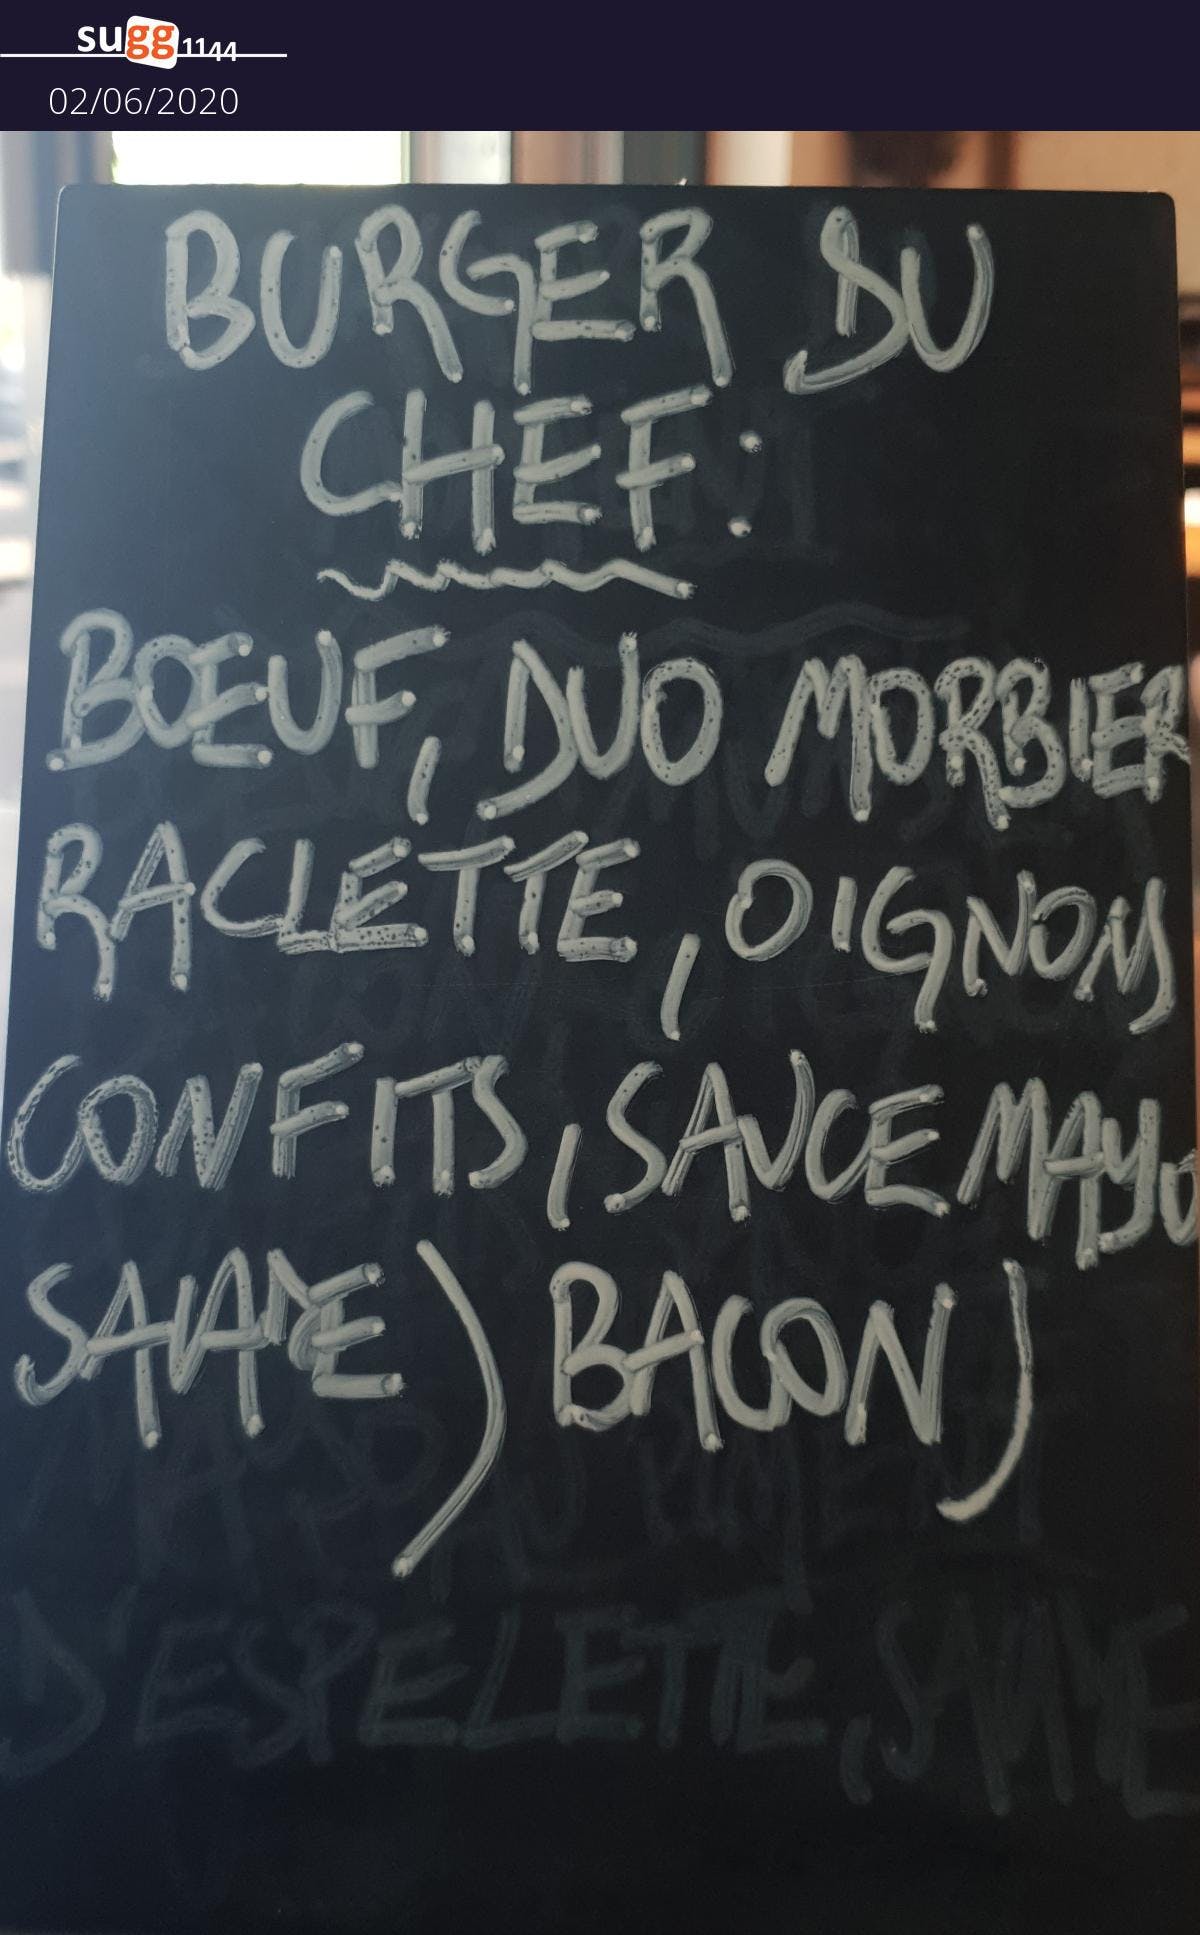 sugg1144
02/06/2020
BURGER DU
CHEF:
BŒUF, DUO MORBIER
RACLETTE, OIGNONS
CONFITS, SAUCE MAYO
SALADE) BACON)
D'ESPELETTE,